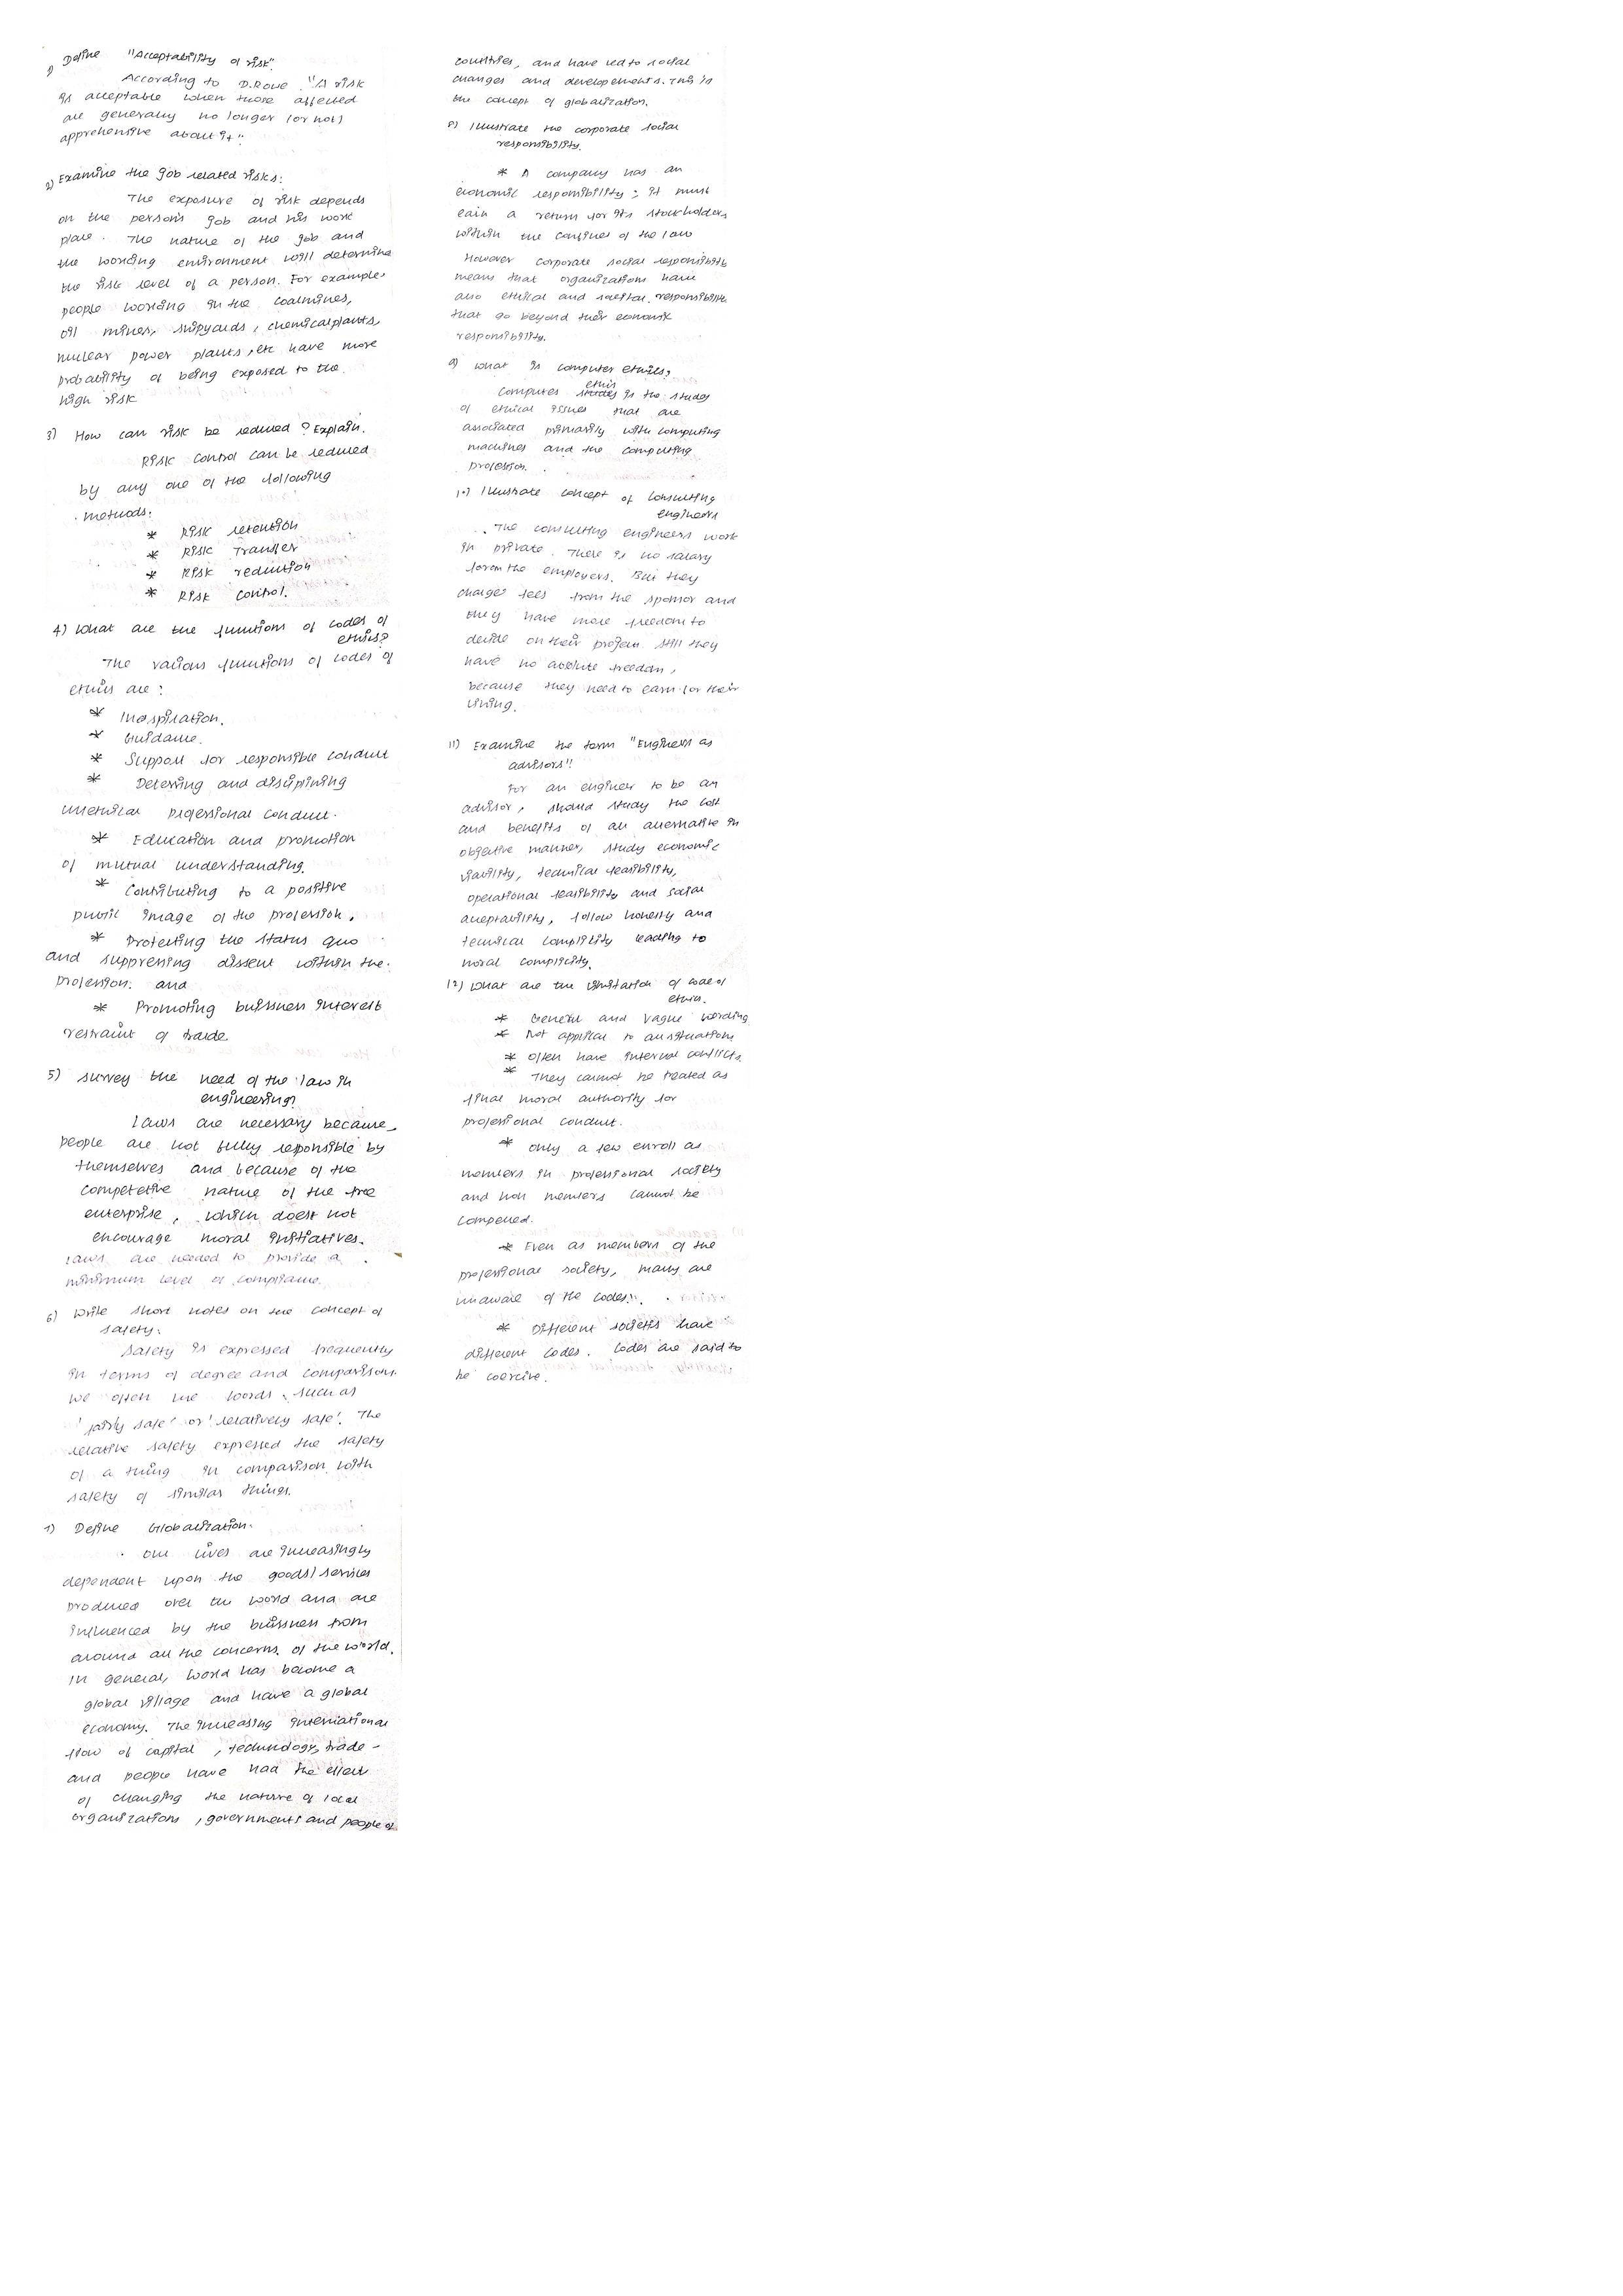 1) Define "Acceptability of risk".
According to D.Rowe "A risk
is acceptable when those affected
are generally no longer (or not)
apprehensive about it".
2) Examine the job related risks:
The exposure of risk depends
on the person's job and his work
place. The nature of the job and
the working environment will determine
the risk level of a person. For example,
people working in the coalmines,
oil mines, shipyards, chemical plants,
nuclear power plants, etc have more
probability of being exposed to the
high risk
3) How can risk be reduced? Explain.
Risk control can be reduced
by any one of the following
methods:
* Risk retention
* Risk Transfer
* Risk reduction
* Risk control.
4) What are the functions of codes of
ethics?
The various functions of codes of
ethics are:
* Inaspiration.
* Guidance.
* Support for responsible conduct
* Deterring and discipining
unethical professional conduct.
* Education and promotion
of mutual understanding.
* Contributing to a positive
public image of the profession.
* Protecting the status quo
and suppressing dissent within the
profession. and
* Promoting buissness interest
restraint of trade.
5) survey the need of the law in
engineering?
Laws are necessary because
people are not fully responsible by
themselves and because of the
competetive nature of the free
enterprise, which does not
encourage moral initiatives.
Laws are needed to provide a
minimum level of compliance.
6) Write short notes on the concept of
safety.
Safety is expressed frequently
in terms of degree and comparison.
We often use words, such as
'fairly safe' or 'relatively safe'. The
relative safety expressed the safety
of a thing in comparison with
safety of similar things.
7) Define Globalization.
Our lives are increasingly
dependent upon the goods/services
produced over the world and are
influenced by the buissness from
around all the concerns of the world.
In general, world has become a
global village and have a global
economy. The increasing international
flow of capital, technology, trade
and people have had the effect
of changing the nature of local
organizations, governments and people of
countries, and have led to social
changes and developements. This is
the concept of globalization.
8) Illustrate the corporate social
responsibility.
* A company has an
economic responsibility; it must
earn a return for its stockholders
within the confines of the law
However corporate social responsibility
means that organizations have
also ethical and societal responsibilities
that go beyond their economic
responsibility.
9) What is computer ethics?
Computer ethics is the study
of ethical issues that are
associated primarily with computing
machines and the computing
profession.
10) Illustrate concept of consulting
engineers
The consulting engineers work
in private. There is no salary
from the employers. But they
charges fees from the sponsor and
they have more freedom to
decide on their project. Still they
have no absolute freedom,
because they need to earn for their
living.
11) Examine the term "Engineers as
advisors"!
For an engineer to be an
advisor, should study the cost
and benefits of all alternative in
objective manner, study economic
viability, technical feasibility,
operational feasibility and social
acceptability, follow honesty and
technical complicity leading to
moral complicity.
12) What are the limitation of code of
ethics.
* General and vague wording
* Not applical to all situations
* Often have internal conflicts.
* They cannot be treated as
final moral authority for
professional conduct.
* Only a few enroll as
members in professional society
and non members cannot be
compelled.
* Even as members of the
professional society, many are
unaware of the codes.
* Different societies have
different codes. Codes are said to
be coercive.